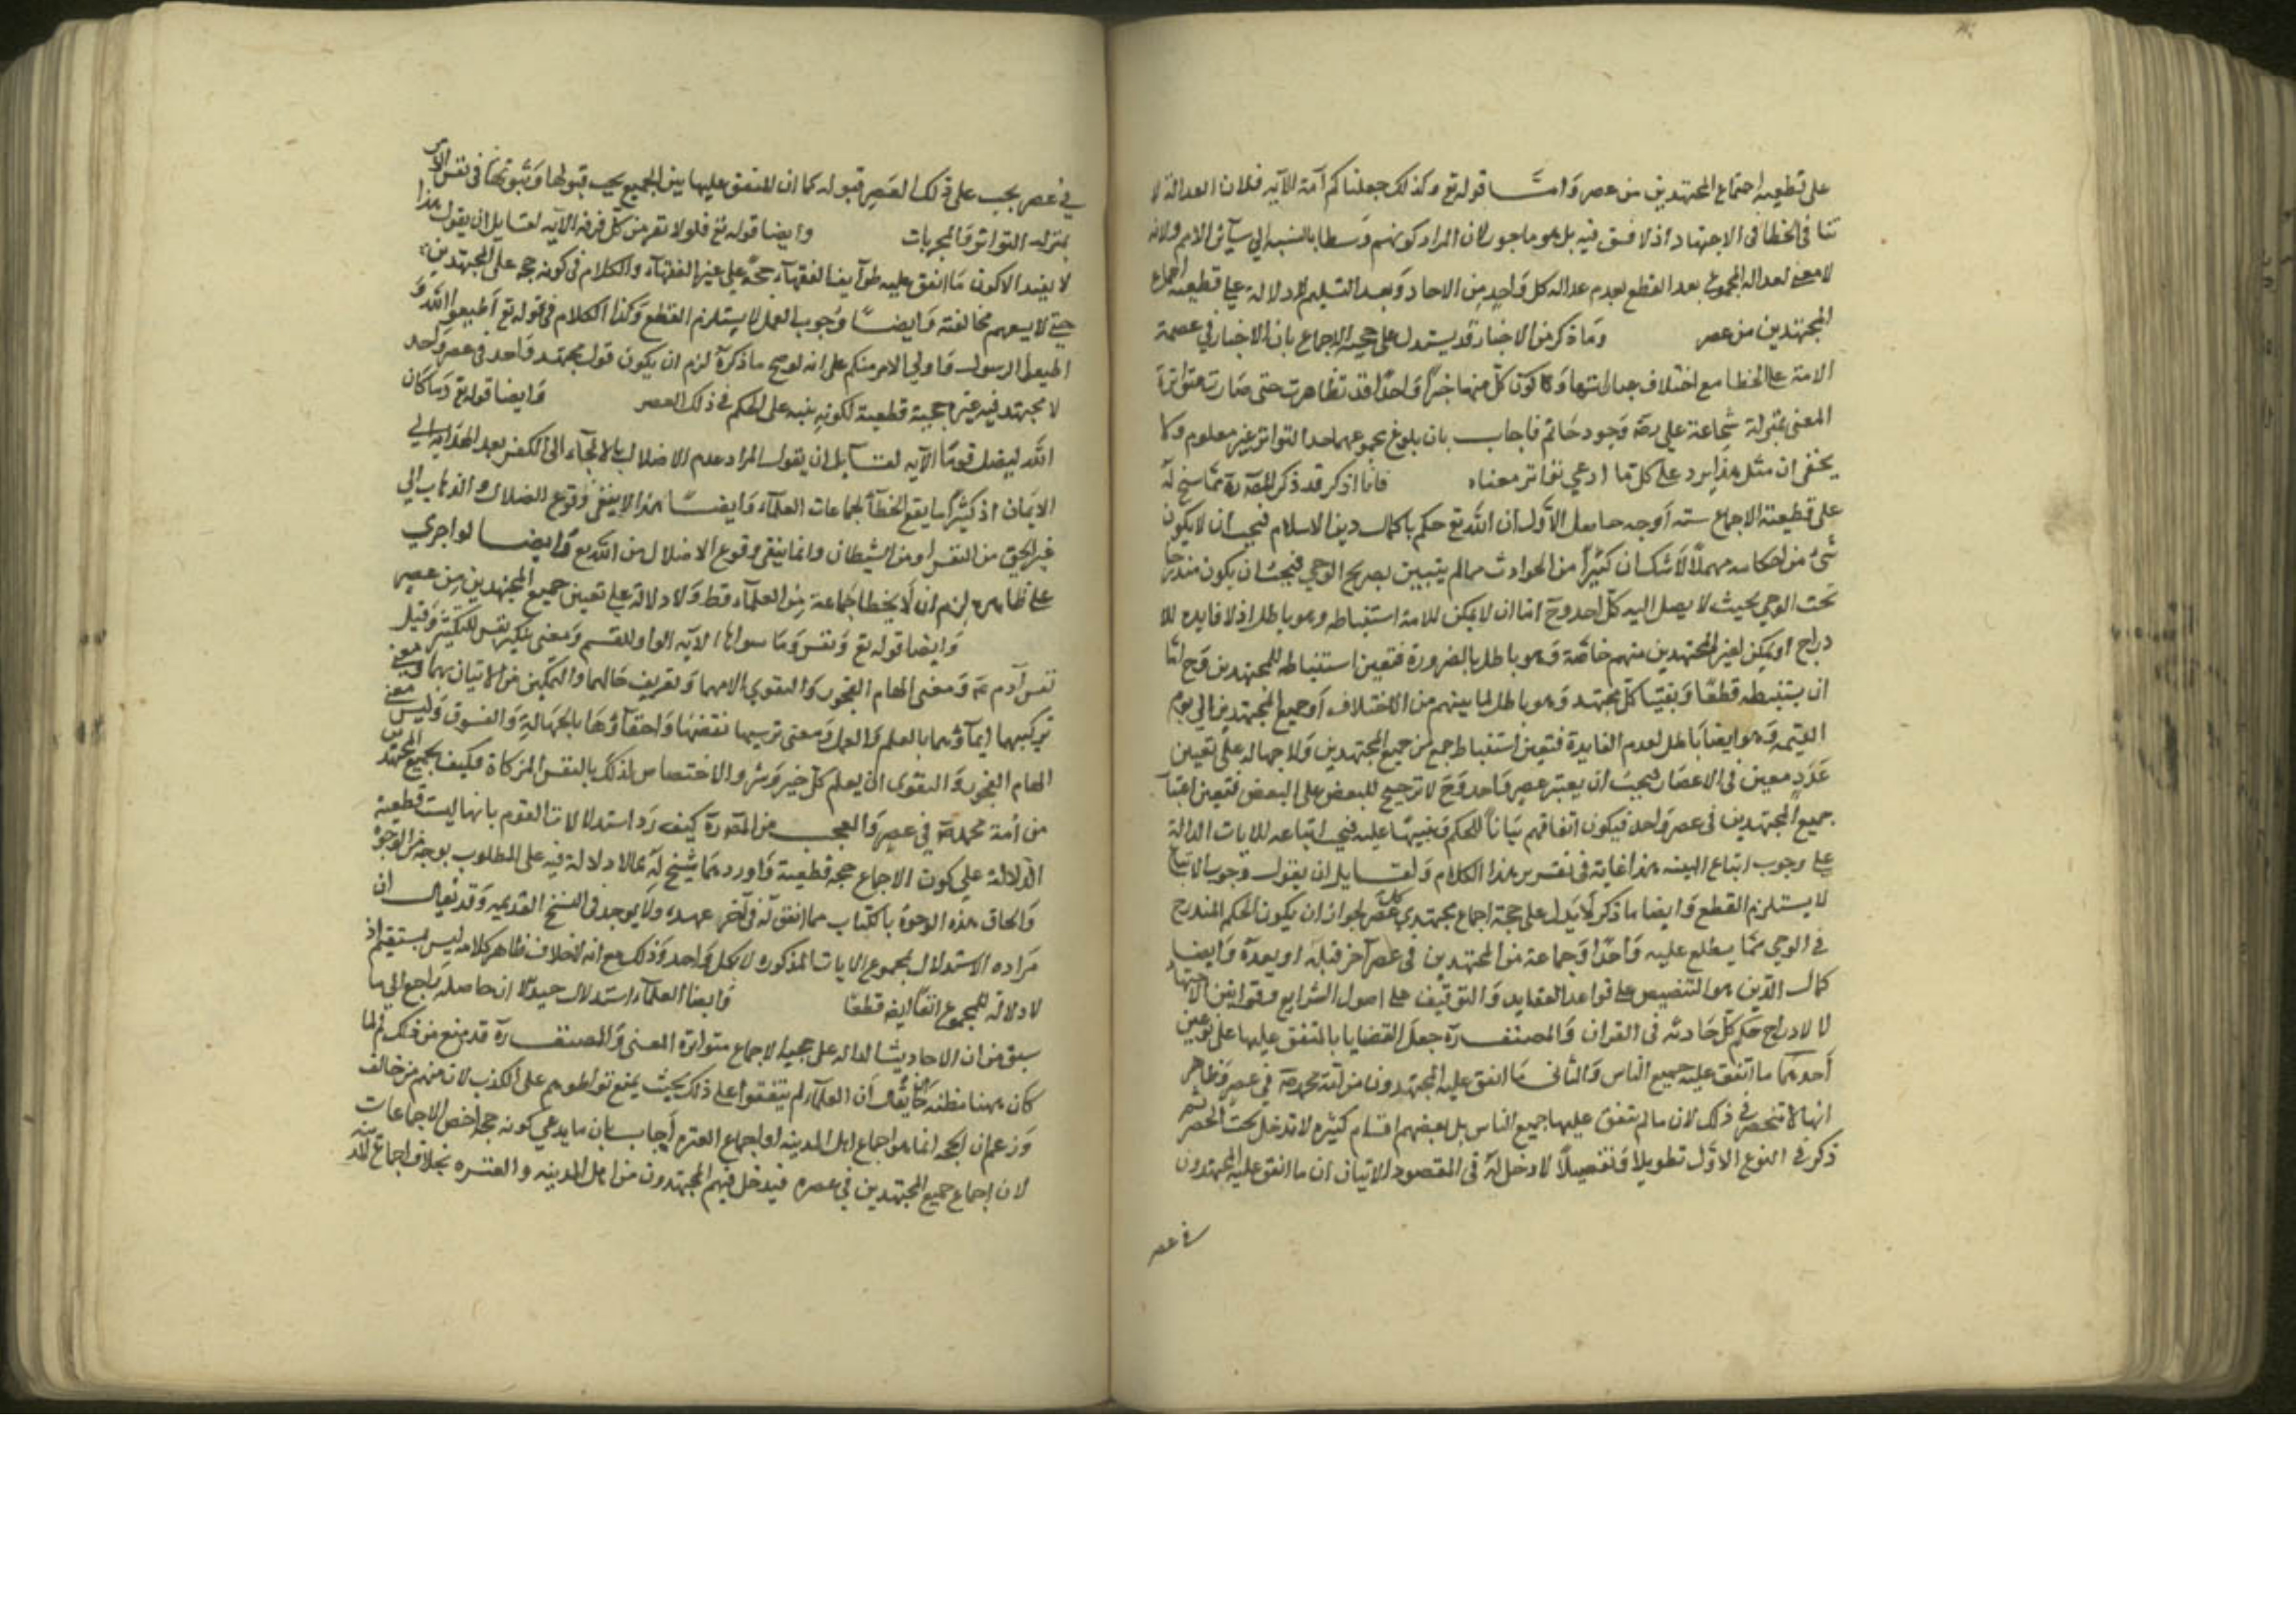 على قطعية اجتماع المجتهدين من عصر وامّا قوله تع وكذلك جعلناكم امة الآيه فلان العدالة لا
تنافى الخطا فى الاجتهاد اذ لا فسق فيه بل هو ماجور ولان المراد كونهم وسطا بالنسبه الي سآئر الامم ولانه
لا معنى لعدالة المجموع بعد القطع بعدم عدالة كل واحد من الاحاد وبعد التسليم لا دلالة على قطعية اجماع
المجتهدين من عصر وما ذكر من الاخبار قد يستدل على حجية الاجماع بان الاخبار في عصمة
الامة عن الخطا مع اختلاف عباراتها وكون كلّ منها خبرًا واحدًا قد تظاهرت حتى صارت متواترة
المعنى بمنزلة شجاعة علي رضه وجود حاتم فاجاب بان بلوغ مجموعها حد التواتر غير معلوم ولا
يخفى ان مثل هذا يرد على كل ما ادعي تواتر معناه فانا اذكر قد ذكر المص رة مما سنح له
على قطعية الاجماع ستة اوجه حاصل الاوّل ان الله تع حكم باكمال دين الاسلام فيجب ان لا يكون
شئ من احكامه مهملًا ولا شك ان كثيرًا من الحوادث مما لم يتبين بصريح الوحي فيجب ان يكون مندرجا
تحت الوحي بحيث لا يصل اليه كلّ احد وح اما ان لا يمكن للامة استنباطه وهو باطل اذ لا فايده للا
دراج او يمكن لغير المجتهدين منهم خاصّة وهو باطل بالضرورة فتعين استنباطه للمجتهدين وح امّا
ان يستنبطه قطعًا ويقينًا كلّ مجتهد وهو باطل لما بينهم من الاختلاف او جميع المجتهدين الى يوم
القيمه وهو ايضا باطل لعدم الفايدة فتعين استنباط جمع من جميع المجتهدين ولا جهالة على تعيين
عدد معين فى الاعصار فيجب ان يعتبر عصر واحد وح لا ترجيح للبعض على البعض فتعين اعتبار
جميع المجتهدين فى عصر واحد فيكون اتفاقهم بيانًا للحكم وبينة عليه فيجب اتباعه للايات الدالة
على وجوب اتباع البينه هذا غاية فى تقرير هذا الكلام ولقايل ان يقول وجوب الاتباع
لا يستلزم القطع وايضا ما ذكر لا يدل على حجة اجماع مجتهدي كل عصر لجواز ان يكون الحكم المندرج
في الوحي ممّا يطلع عليه واحد او جماعة من المجتهدين فى عصر آخر قبله او بعده وايضا
كمال الدّين هو التنصيص على قواعد العقايد والتوقيف على اصول الشرايع وقوانين الاجتهاد
لا لادراج حكم كلّ حادثه فى القران والمصنف رة جعل القضايا بالمتفق عليها على نوعين
أحدهما ما اتفق عليه جميع الناس والثانى ما اتفق عليه المجتهدون من امّة محمد صة في عصر وظاهر
انها لا تنحصر في ذلك لان ما لم يتفق عليها جميع الناس بل بعضهم اقسام كثيره لا تدخل تحت الحصر ثم
ذكر في النوع الاوّل تطويلًا وتفصيلًا لا دخل له فى المقصود لاتيان ان ما اتفق عليه المجتهدون
في عصر
في عصر يجب على ذلك العصر قبوله كما ان المتفق عليها بين الجميع يجب قبولها وثبوتها فى نفس الامر
بمنزلة التواتر والمجربات وايضا قوله تع فلولا نفر من كلّ فرقة الآيه لقايل ان يقول هذا
لا يفيد الا كون ما اتفق عليه طوآيف الفقهآء حجّة على غير الفقهآء والكلام فى كونه حجه على المجتهدين
حتى لا يسعهم مخالفته وايضا وجوب العمل لا يستلزم القطع وكذا الكلام فى قوله تع اطيعوا الله و
اطيعوا الرسول واولي الامر منكم على انه لو صح ما ذكره لزم ان يكون قول مجتهد واحد فى عصر واحد
لا مجتهد فيه غيره حجة قطعية لكونه بينه على الحكم في ذلك العصر وايضا قوله تع وما كان
الله ليضل قومًا الآيه لقايل ان يقول المراد عدم الاضلال بالالجآء الى الكفر بعد الهداية الي
الايمان اذ كثيرًا ما يقع الخطأ لجماعات العلمآء وايضا هذا لا ينفى وقوع الضلال والذهاب الى
غير الحق من النفس او من الشيطان وانما ينفى وقوع الاضلال من الله تع وايضا لو اجري
على ظاهره لزم ان لا يخطا جماعة من العلمآء قط ولا دلالة على تعيين جميع المجتهدين من عصر
وايضا قوله تع ونفس وما سواها الآيه الواو للقسم ومعنى تنكير نفس للتكثير وقيل
نفس آدم عة ومعنى الهام الفجور والتقوي افهامهما وتعريف حالهما والتمكين من الاتيان بهما ومعنى
تزكيتها انمآؤها بالعلم والعمل ومعنى تدسيها نقضها واخفآؤها بالجهالة والفسوق وليس معنى
الهام الفجور والتقوى ان يعلم كلّ خير وشر ولا اختصاص لذلك بالنفس المزكاة فكيف بجميع المجتهدين
من أمة محمد صة في عصر والعجب من المص رة كيف رد استدلالات القوم بانها ليست قطعية
الدلالة على كون الاجماع حجة قطعية واورد مما سنح له ما لا دلالة فيه على المطلوب بوجه من الوجوه
والحاق هذه الوجوه بالكتاب مما اتفق له فى آخر عهده ولا يوجد فى النسخ القديمه وقد يقال ان
مراده الاستدلال بمجموع الايات المذكوره لا بكل واحد وذلك مع انه خلاف ظاهر كلامه ليس بمستقيم اذ
لا دلالة للمجموع ايضا قطعًا وايضا العلمآء استدلال جيد الا ان حاصله راجع الى ما
سبق من ان الاحاديث الدالة على حجية الاجماع متواترة المعنى والمصنف رة قد منع من ذلك ثم لما
كان ههنا مظنة ان يقال أن العلمآء لم يتفقوا على ذلك بحيث يمتنع تواطؤهم على الكذب لان منهم من خالف
وزعم ان الحجة انما هو اجماع اهل المدينه او اجماع العتره أجاب بان ما يدعي كونه حجه اخص الاجماعات
لان إجماع جميع المجتهدين في عصره فيدخل فيهم المجتهدون من اهل المدينه والعتره بخلاف اجماع